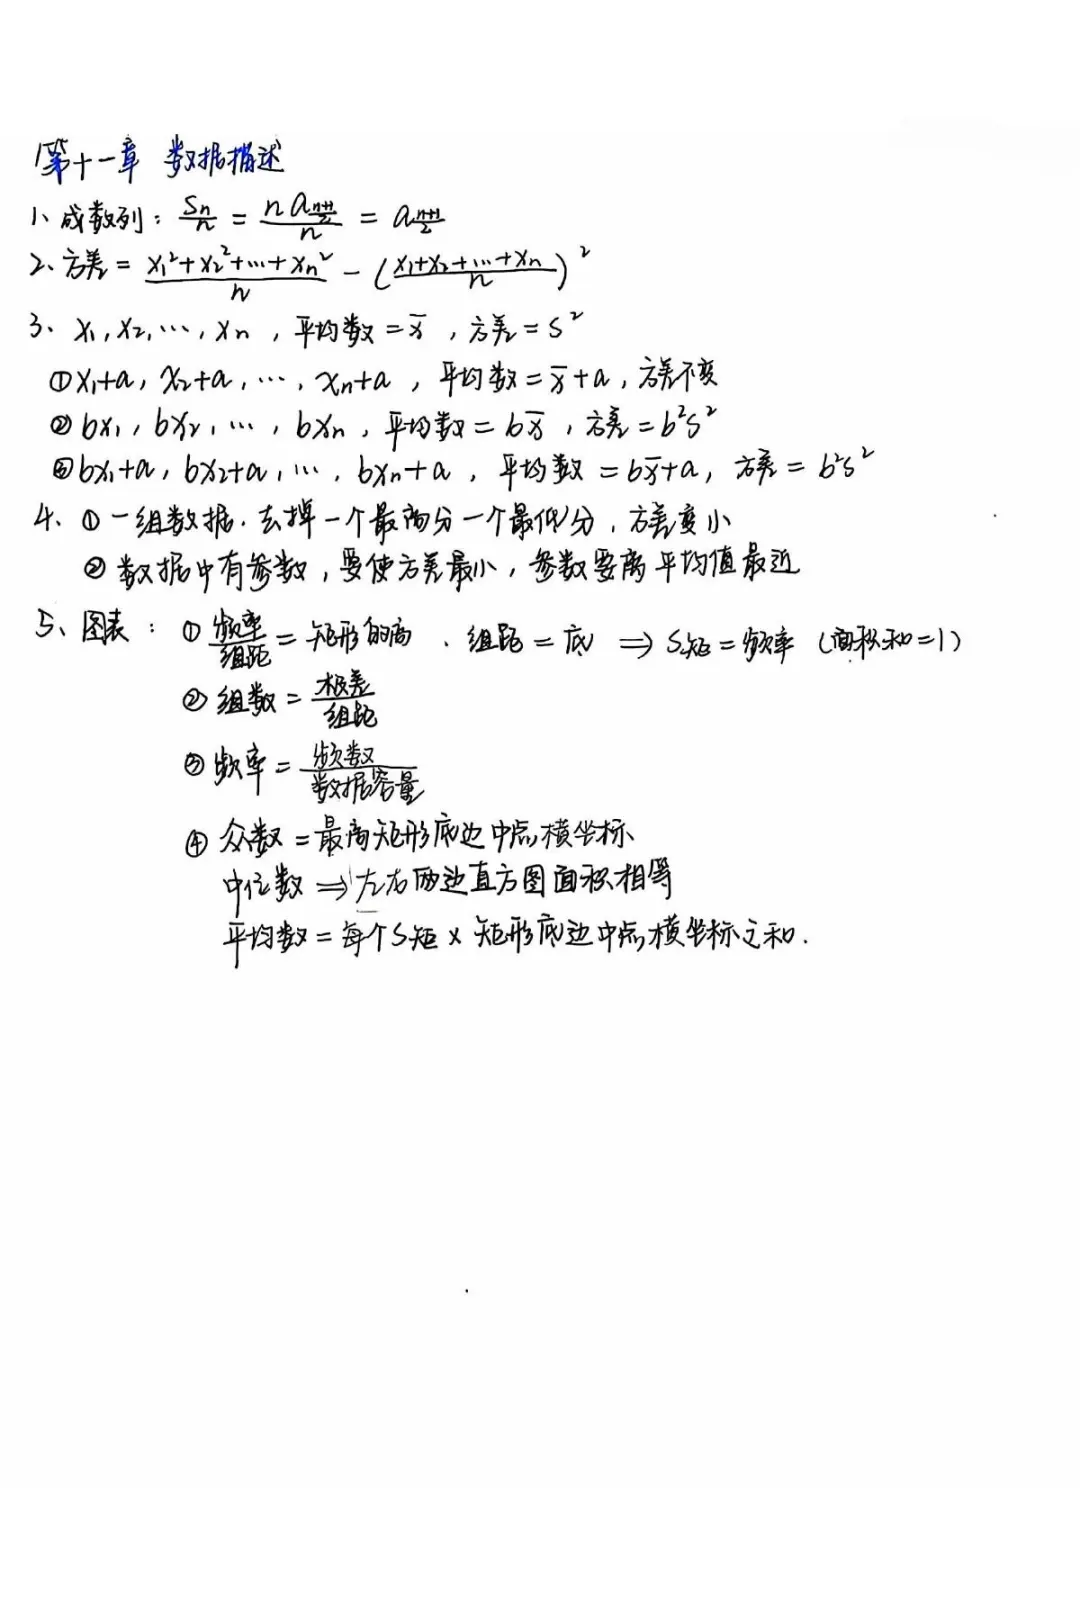 第十一章 数据描述
1、成数列：Sn/n = n a_{(n+1)/2}/n = a_{(n+1)/2}
2、方差 = (x₁²+x₂²+…+xₙ²)/n - ((x₁+x₂+…+xₙ)/n)²
3、x₁, x₂, …, xₙ，平均数 = x̄，方差 = s²
①x₁+a, x₂+a, …, xₙ+a，平均数 = x̄+a，方差不变
②bx₁, bx₂, …, bxₙ，平均数 = bx̄，方差 = b²s²
③bx₁+a, bx₂+a, …, bxₙ+a，平均数 = bx̄+a，方差 = b²s²
4、①一组数据．去掉一个最高分一个最低分，方差变小
②数据中有参数，要使方差最小，参数要离平均值最近
5、图表：①频率/组距 = 矩形的高、组距 = 底 ⇒ S矩 = 频率（面积和=1）
②组数 = 极差/组距
③频率 = 频数/数据容量
④众数 = 最高矩形底边中点横坐标
中位数 ⇒ 左右两边直方图面积相等
平均数 = 每个S矩 × 矩形底边中点横坐标之和.